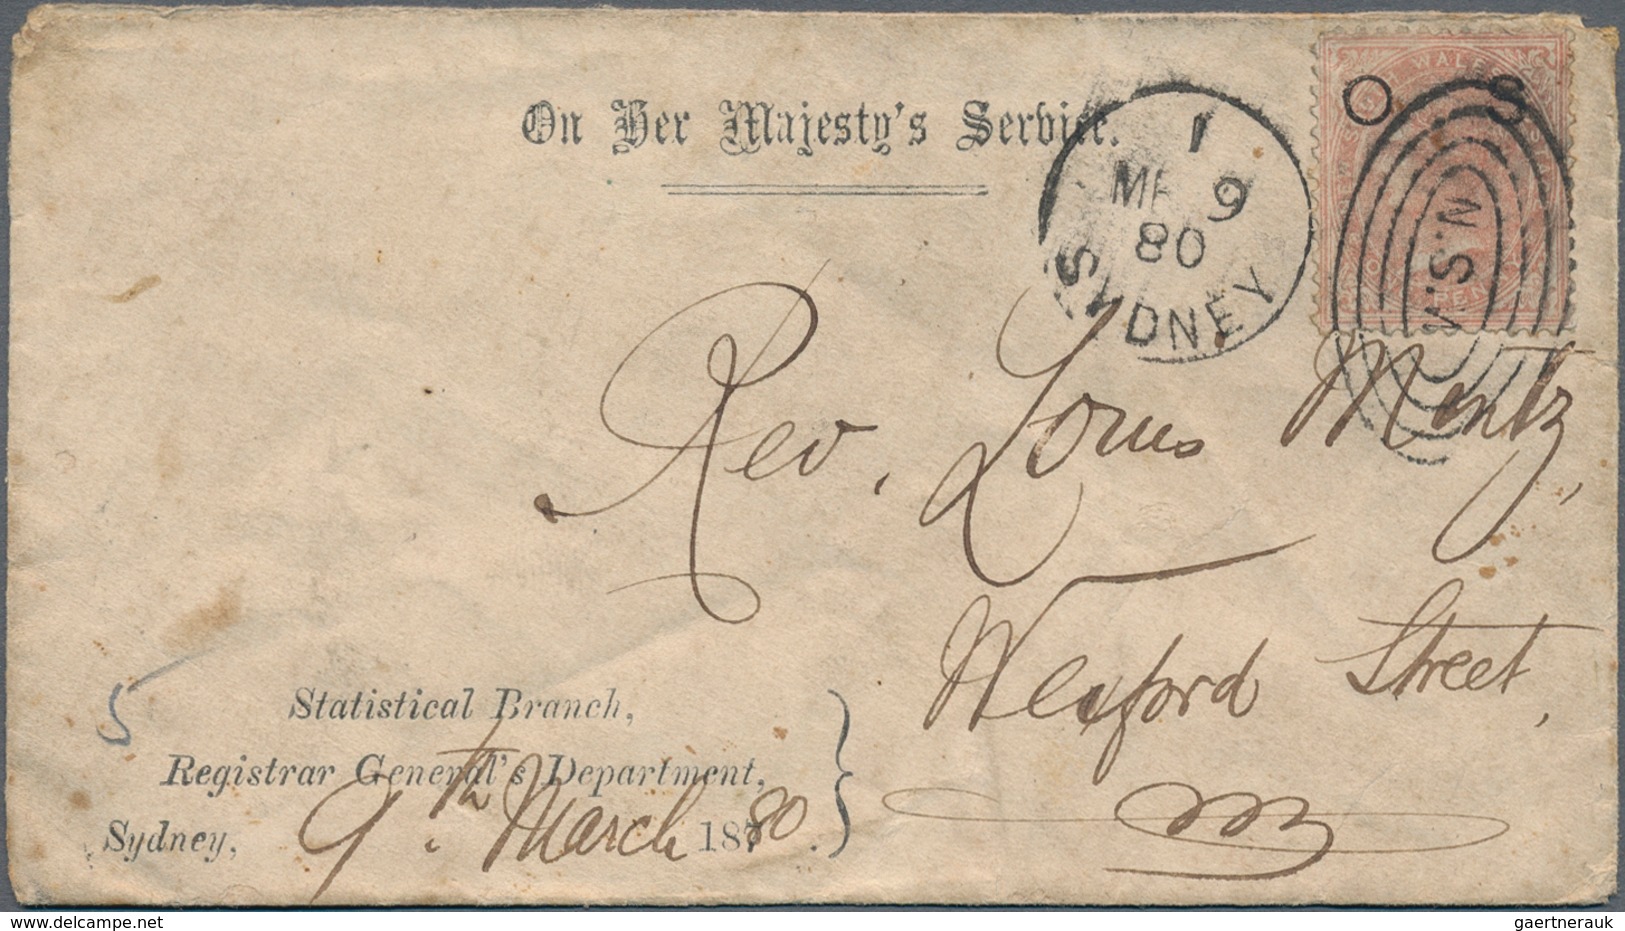 On Her Majesty's Service.
WALES
O S
1
MR 9
80
SYDNEY
N.S.W
PEN
Rev. Louis Mentz,
Wexford Street,
5
Statistical Branch,
Registrar General's Department,
Sydney, 9th March 1880.
delcampe.net
gaertnerauk